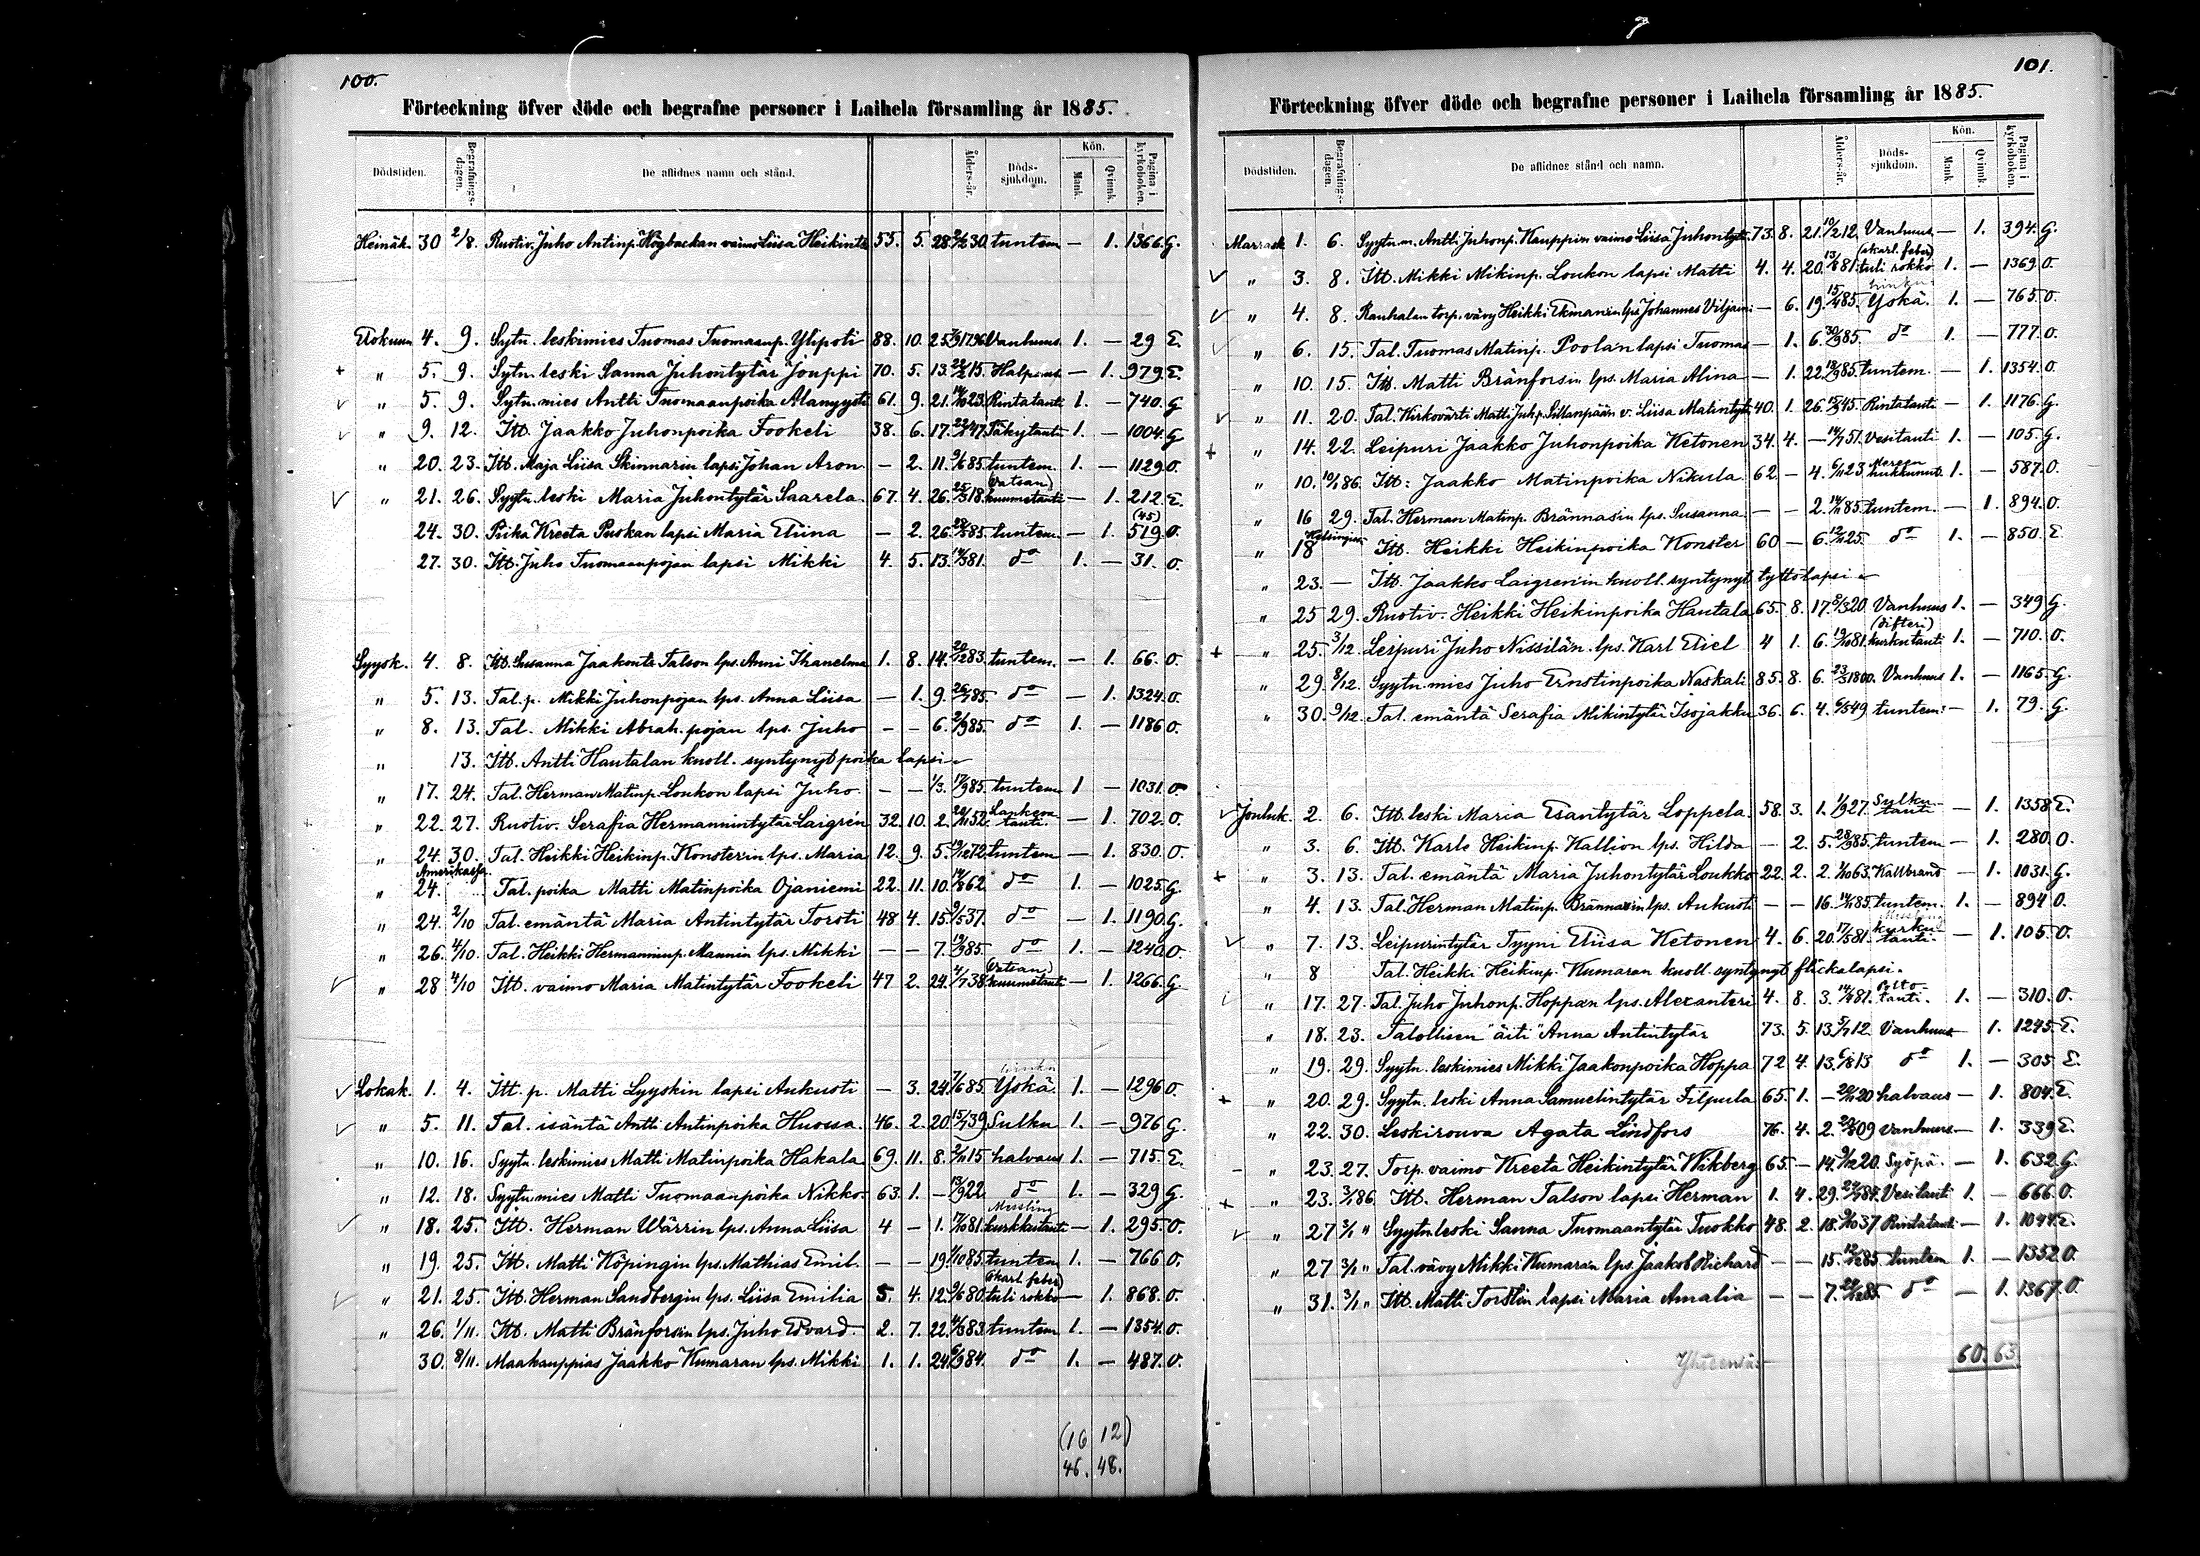 100.
Förteckning öfver döde och begrafne personer i Laihela församling år 1885.
Dödstiden. Begrafnings-dagen. De aflidnes namn och stånd. Ålders-år. Döds-sjukdom. Kön. Mank. Qvinnk. Pagina i kyrkoboken.
Heinäk. 30 2/8. Ruotiv. Juho Antinp. Högbackan vaimo Liisa Heikint. 55. 5. 28 30. tuntem — 1. 1366. G.
Elokuun 4. 9. Sytn. leskimies Tuomas Tuomasnp. Ylipoti 88. 10. 25 1796 Vanhuus 1. — 29 E.
" 5. 9. Sytn. leski Sanna Juhontytär Jouppi 70. 5. 13. 15. — 1. 979. E.
" 5. 9. Sytn. mies Antti Tuomaanpoika Alamyysti 61. 9. 21. 23. Rintatauti 1. — 740. G
" 9. 12. Itt. Jaakko Juhonpoika Fookeli 38. 6. 17. 47 1. — 1004. G
" 20. 23. Itt. Maja Liisa Skinnarin lapsi Johan Aron — 2. 11. 9/6 85. tuntem. 1. — 1129 O.
" 21. 26. Syytn. leski Maria Juhontytär Saarela 67. 4. 26. 18. (Vatsan) kuumetauti — 1. 212. E.
24. 30. Piika Kreeta Puskan lapsi Maria Eliina — 2. 26. 85. tuntem. — 1. (45) 519 O.
27. 30. Itt. Juho Tuomaanpojan lapsi Mikki 4. 5. 13. 81. do 1. — 31. O.
Syysk. 4. 8. Itt. Susanna Jaakonts Talson lps. Anni Ihanelma 1. 8. 14. 83. tuntem. — 1. 66. O.
" 5. 13. Tal. p. Mikki Juhonpojan lps. Anna Liisa — 1. 9. 26/7 85. do — 1. 1324. O.
" 8. 13. Tal. Mikki Abrah. pojan lps. Juho — — 6. 2/9 85. do 1. — 1186 O.
" 13. Itt. Antti Hautalan kuoll. syntynyt poika lapsi
" 17. 24. Tal. Herman Matinp. Loukon lapsi Juho — — 1/3. 17/9 85. tuntem 1 — 1031. O
" 22. 27. Ruotiv. Serafia Hermannintytär Laigrén 32. 10. 2. 20/11 52. tauti. — 1. 702. O.
" 24. 30. Tal. Heikki Heikinp. Konsterin lps. Maria 12. 9. 5. 19/12 72. tuntem — 1. 830. O.
Amerikassa
" 24. Tal. poika Matti Matinpoika Ojaniemi 22. 11. 10. 62. do 1. — 1025. G.
" 24 2/10 Tal. emäntä Maria Antintytär Torsti 48 4. 15. 9/5 37. do — 1. 1190. G.
" 26. 4/10. Tal. Heikki Hermanninp. Mannin lps. Mikki — — 7. 19/9 85. do 1. — 1240. O.
" 28 4/10 Itt. vaimo Maria Matintytär Fookeli 47 2. 24. 4/7 38. (Vatsan) kuumetauti — 1. 1266. G.
Lokak. 1. 4. Itt. p. Matti Lyyskin lapsi Aukusti — 3. 24. 7/6 85. Yskä. 1. — 1296 O.
" 5. 11. Tal. isäntä Antti Antinpoika Huossa. 46. 2. 20. 15/7 39. Sulku 1. — 976 G.
" 10. 16. Syytn. leskimies Matti Matinpoika Hakala 69. 11. 8. 2/11 15. halvaus 1. — 715. E.
" 12. 18. Syytn. mies Matti Tuomaanpoika Nikko. 63. 1. — 13/9 22. do 1. — 329 G.
" 18. 25. Itt. Herman Wärrin lps. Anna Liisa 4 — 1. 17/10 81. Messling kurkkutauti — 1. 295. O.
" 19. 25. Itt. Matti Köpingin lps. Mathias Emil. — — 19. 85. tuntem 1. — 766 O.
" 21. 25. Itt. Herman Sandbergin lps. Liisa Emilia 5. 4. 12. 9/6 80. (skarl. feber) tuli rokko — 1. 868. O.
" 26. 1/11. Itt. Matti Bränforsin lps. Juho Edvard. 2. 7. 22. 4/3 83. tuntem 1. — 1354. O.
30. 8/11. Maakauppias Jaakko Kumaran lps. Mikki 1. 1. 24. 6/9 84. do 1. — 487. O.
(16 12)
46. 48.
101.
Förteckning öfver döde och begrafne personer i Laihela församling år 1885.
Dödstiden. Begrafnings-dagen. De aflidnes stånd och namn. Ålders-år. Döds-sjukdom. Kön. Mank. Qvinnk. Pagina i kyrkoboken.
Marrask 1. 6. Syytn. m. Antti Juhonp. Kauppin vaimo Liisa Juhontyt. 73. 8. 21. 10/2 12. Vanhuus — 1. 394. G.
" 3. 8. Itt. Mikki Mikinp. Loukon lapsi Matti 4. 4. 20. 13/6 81. (skarl. feber) tuli rokko 1. — 1369. O.
" 4. 8. Rauhalan torp. vävy Heikki Ekmanin lps. Johannes Viljami — 6. 19. 15/4 85. Yskä. 1. — 765. O.
" 6. 15. Tal. Tuomas Matinp. Poolan lapsi Tuomas — 1. 6. 30/9 85. do 1. — 777. O.
" 10. 15. Itt. Matti Bränforsin lps. Maria Alina — 1. 22. 85. tuntem. — 1. 1354. O.
" 11. 20. Tal. Kirkovärti Matti Juh.p. Sillanpään v. Liisa Matintyt. 40. 1. 26. 45. Rintatauti — 1. 1176. G.
" 14. 22. Leipuri Jaakko Juhonpoika Ketonen 34. 4. — 14/7 51. Vesitauti 1. — 105. G.
" 10. 10/1 86. Itt: Jaakko Matinpoika Nikula 62 — 4. 6/11 23. hukkunut 1. — 587. O.
" 16 29. Tal. Herman Matinp. Brännasin lps. Susanna. — — 2. 14/11 85. tuntem. — 1. 894. O.
Helsingis
" 18 Itt. Heikki Heikinpoika Konster 60 — 6. 12/11 25. do 1. — 850. E
" 23. — Itt. Jaakko Laigrenin kuoll. syntynyt tyttölapsi
" 25 29. Ruotiv. Heikki Heikinpoika Hautala 65. 8. 17. 8/3 20. Vanhuus 1. — 349 G.
" 25. 3/12. Leipuri Juho Nissilän lps. Karl Eliel 4 1. 6. 19/10 81. (difteri) kurkutauti 1. — 710. O.
" 29. 8/12. Syytn. mies Juho Ernstinpoika Naskali 85. 8. 6. 23/3 1800. Vanhuus 1. — 1165. G.
" 30. 9/12. Tal. emäntä Serafia Mikintytär Isojakku 36. 6. 4. 49 tuntem: — 1. 79. G.
Jouluk. 2. 6. Itt. leski Maria Esantytär Loppela. 58. 3. 1. 1/9 27. Sulku-tauti — 1. 1358 E.
" 3. 6. Itt. Karls Heikinp. Kallion lps. Hilda — 2. 5. 28/9 85. tuntem — 1. 280. O.
" 3. 13. Tal. emäntä Maria Juhontytär Loukko 22. 2. 2. 1/10 63. Kallbrand — 1. 1031. G.
" 4. 13. Tal. Herman Matinp. Brännasin lps. Aukusti — — 16. 85. tuntem. 1. — 894 O.
" 7. 13. Leipurintytär Tyyni Eliisa Ketonen 4. 6. 20. 17/5 81. Messling kurku tauti. — 1. 105. O.
" 8 Tal. Heikki Heikinp. Kumaran kuoll. syntynyt flickalapsi.
" 17. 27. Tal. Juho Juhonp. Hoppan lps. Alexanteri 4. 8. 3. 14/4 81. tauti. 1. — 310. O.
" 18. 23. Talollisen "äiti" Anna Antintytär 73. 5. 13. 5/7 12. Vanhuus — 1. 1245. E.
" 19. 29. Syytn. leskimies Mikki Jaakonpoika Hoppa 72 4. 13. 6/8 13 do 1. — 305 E.
" 20. 29. Syytn. leski Anna Samuelintytär Filpula 65. 1. — 20/11 20 halvaus — 1. 804. E.
" 22. 30. Leskirouva Agata Lindfors 76. 4. 2. 20/8 09 vanhuus — 1. 339 E.
" 23. 27. Torp. vaimo Kreeta Heikintytär Wikberg 65. — 14. 9/12 20. Syöpä. — 1. 632. G.
" 23. 3/1 86. Itt. Herman Talson lapsi Herman 1. 4. 29. 84. Vesitauti 1. — 666. O.
" 27 3/1 " Syytn. leski Sanna Tuomaantytär Tuokko 48. 2. 18. 9/10 37 Rintatauti — 1. 1044. E.
" 27 3/1 " Tal. vävy Mikki Kumaran lps. Jaakob Richard — — 15. 12/12 85. tuntem 1. — 1352 O.
" 31. 3/1 " Itt. Matti Torstin lapsi Maria Amalia — — 7. 24/12 85. do — 1. 1367. O.
Yhteensä 60. 63